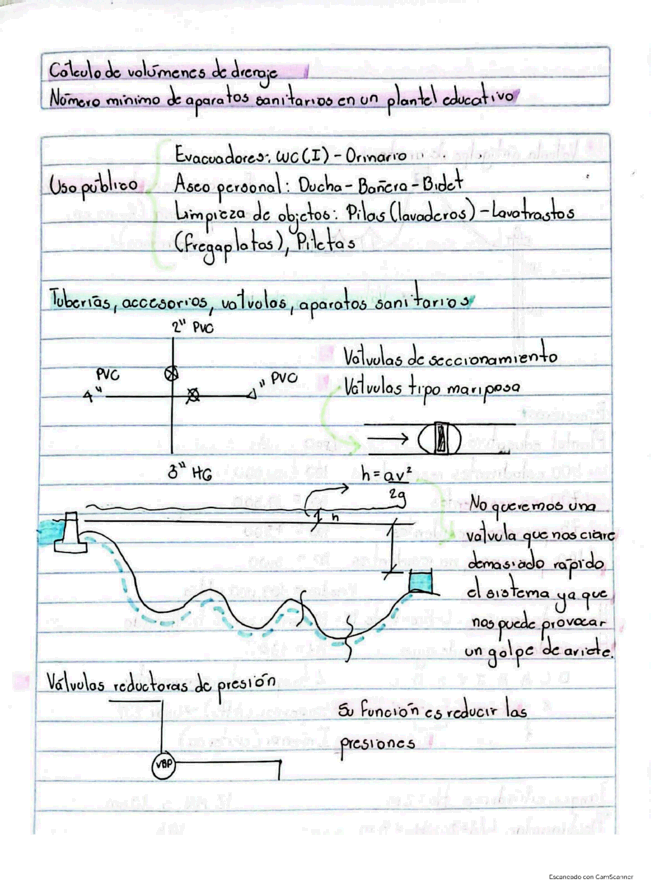 Cálculo de volúmenes de drenaje
Número mínimo de aparatos sanitarios en un plantel educativo
Evacuadores: WC(I) - Orinario
Uso público
Aseo personal: Ducha - Bañera - Bidet
Limpieza de objetos: Pilas (lavaderos) - Lavatrastos
(Fregaplatos), Piletas
Tuberías, accesorios, valvulas, aparatos sanitarios
2" PVC
PVC
4"
" PVC
3" HG
Válvulas de seccionamiento
Válvulas tipo mariposa
h = av²
2g
h
No queremos una
valvula que nos ciere
demasiado rapido
el sistema ya que
nos puede provocar
un golpe de ariete.
Válvulas reductoras de presión
VBP
Su función es reducir las
presiones
Escaneado con CamScanner